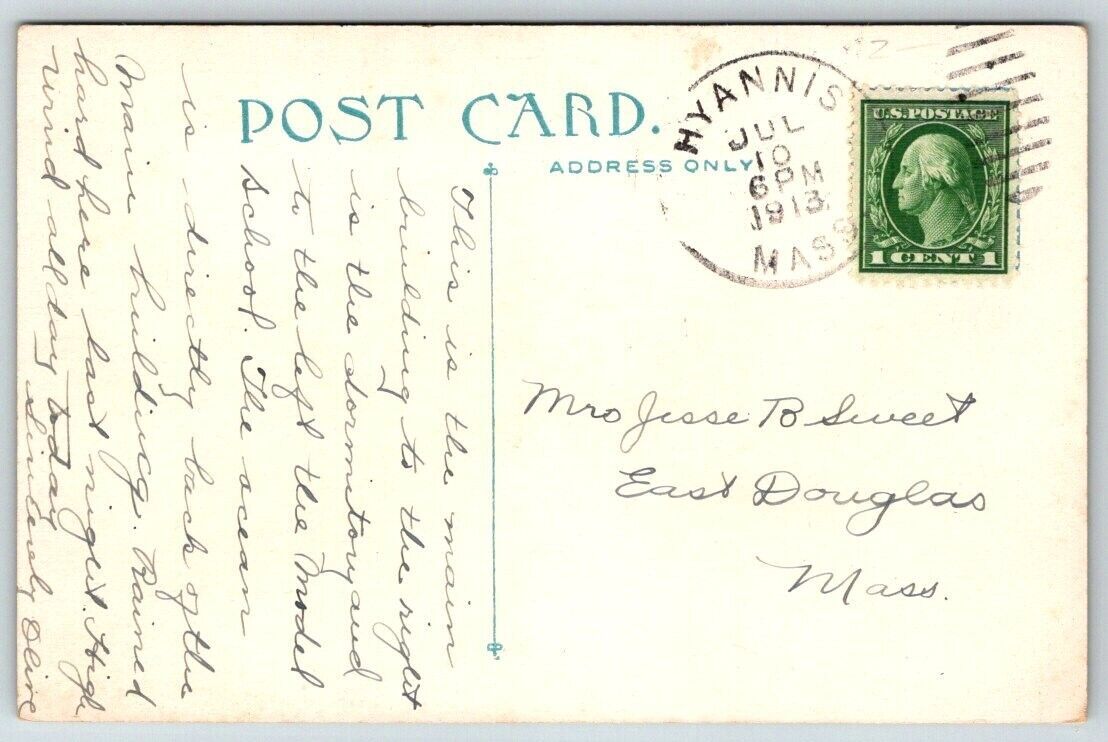 POST CARD.
ADDRESS ONLY
HYANNIS
JUL
10
6 PM
1913
MASS
U.S. POSTAGE
1 CENT 1
This is the main
building to the right
is the dormitory and
to the left the Model
School. The ocean
is directly back of the
main building. Rained
hard here last night. High
wind all day today
Sincerely Olive
Mrs Jesse B Sweet
East Douglas
Mass.